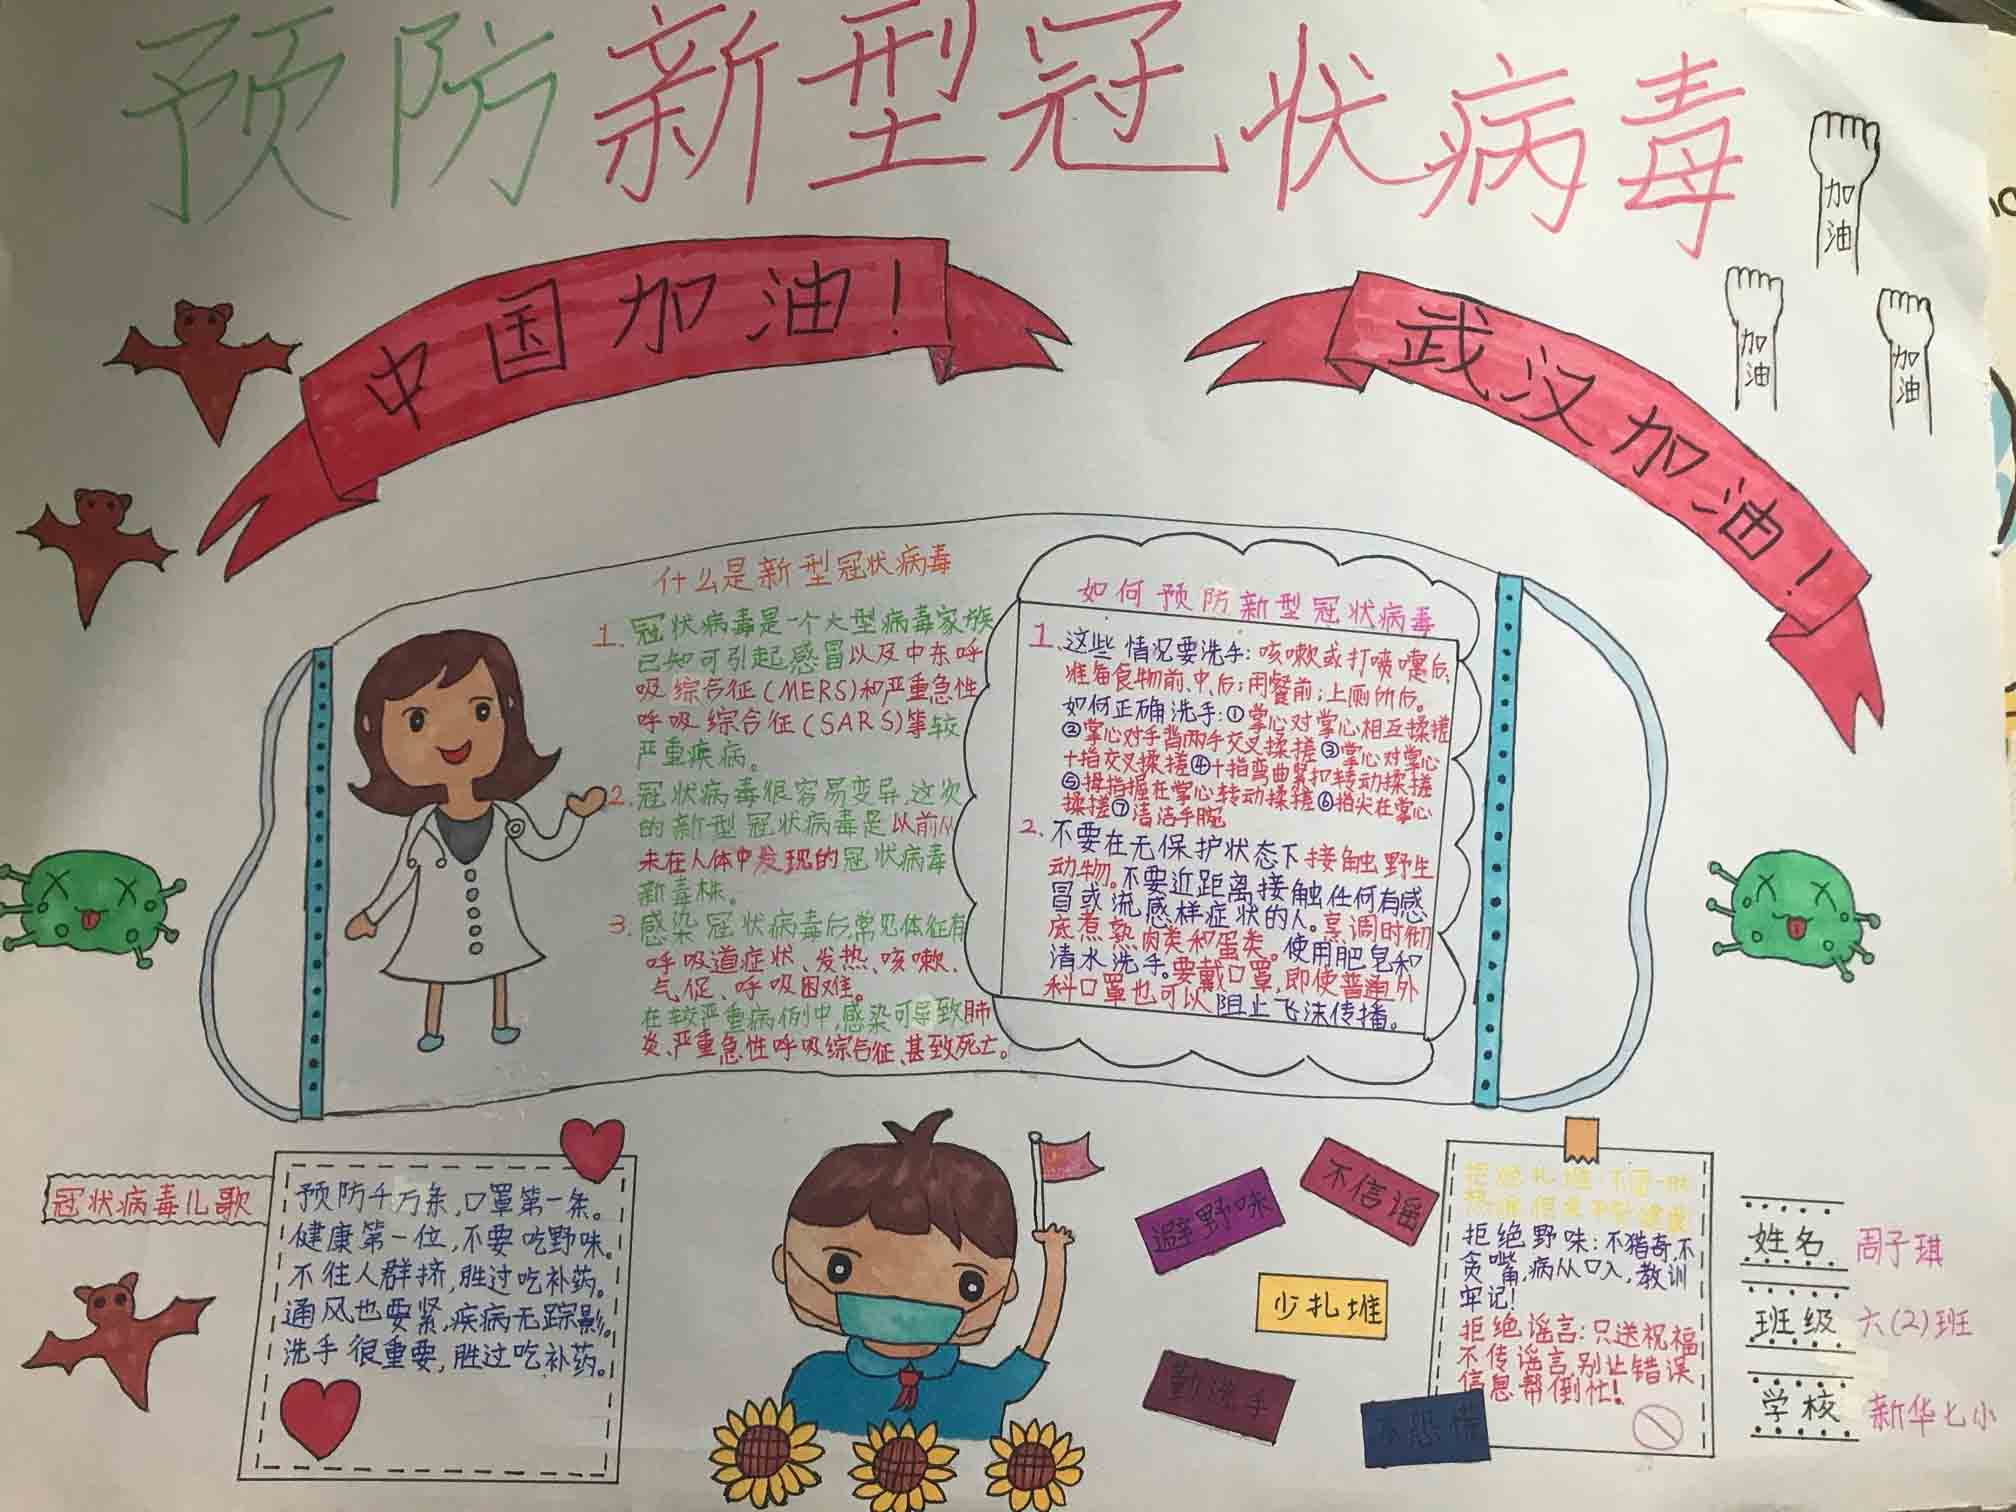 预防新型冠状病毒
加油
加油
加油
中国加油！
武汉加油！
什么是新型冠状病毒
1.冠状病毒是一个大型病毒家族
已知可引起感冒以及中东呼
吸综合征(MERS)和严重急性
呼吸综合征(SARS)等较
严重疾病。
2.冠状病毒很容易变异,这次
的新型冠状病毒是以前从
未在人体中发现的冠状病毒
新毒株。
3.感染冠状病毒后常见体征有
呼吸道症状、发热、咳嗽、
气促、呼吸困难。
在较严重病例中,感染可导致肺
炎、严重急性呼吸综合征、甚致死亡。
如何预防新型冠状病毒
1、这些情况要洗手:咳嗽或打喷嚏后;
准备食物前、中、后;用餐前;上厕所后。
如何正确洗手:①掌心对掌心相互揉搓
②掌心对手背两手交叉揉搓③掌心对掌心
十指交叉揉搓④十指弯曲紧扣转动揉搓
⑤拇指握在掌心转动揉搓⑥指尖在掌心
揉搓⑦清洁手腕
2、不要在无保护状态下接触野生
动物。不要近距离接触任何有感
冒或流感样症状的人。烹调时彻
底煮熟肉类和蛋类。使用肥皂和
清水洗手。要戴口罩,即使普通外
科口罩也可以阻止飞沫传播。
冠状病毒儿歌
预防千万条,口罩第一条。
健康第一位,不要吃野味。
不往人群挤,胜过吃补药。
通风也要紧,疾病无踪影。
洗手很重要,胜过吃补药。
避野味
不信谣
少扎堆
勤洗手
不恐慌
拒绝扎堆:不图一时
热闹
拒绝野味:不猎奇,不
贪嘴,病从口入,教训
牢记!
拒绝谣言:只送祝福
不传谣言,别让错误
信息帮倒忙!
姓名 周子琪
班级 六(2)班
学校 新华七小